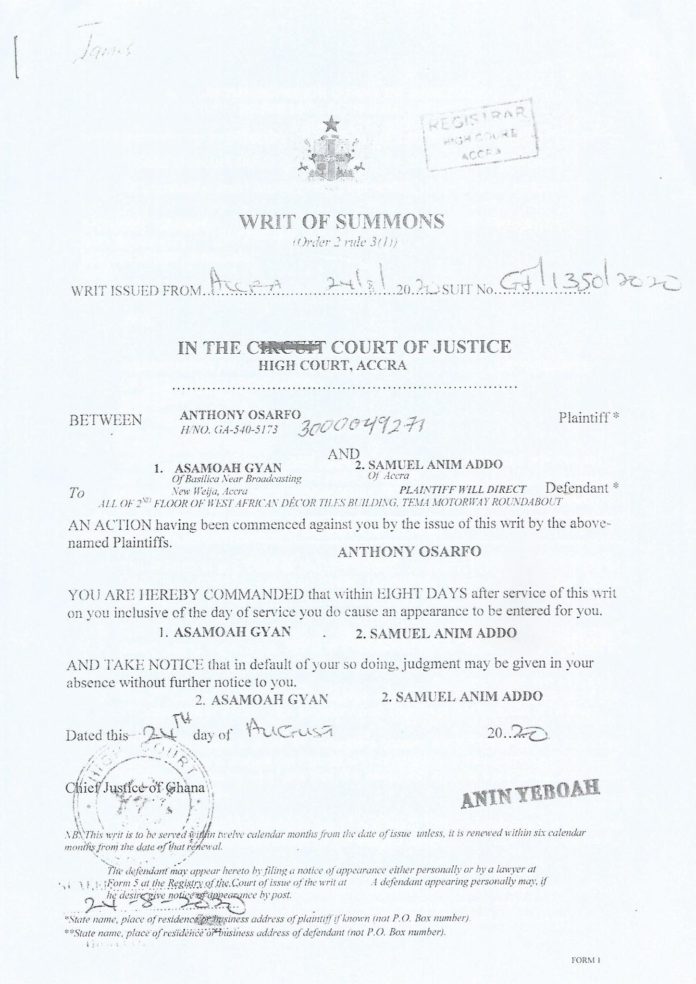 James
REGISTRAR
HIGH COURT
ACCRA
WRIT OF SUMMONS
(Order 2 rule 3(1))
WRIT ISSUED FROM..ACCRA 24/8/ 20.20 SUIT No. GJ/1350/2020
IN THE CIRCUIT COURT OF JUSTICE
HIGH COURT, ACCRA
BETWEEN ANTHONY OSARFO Plaintiff *
H/NO. GA-540-5173 3000049271
AND
1. ASAMOAH GYAN 2. SAMUEL ANIM ADDO
Of Basilica Near Broadcasting Of Accra
To New Weija, Accra PLAINTIFF WILL DIRECT Defendant *
ALL OF 2ND FLOOR OF WEST AFRICAN DÉCOR TILES BUILDING, TEMA MOTORWAY ROUNDABOUT
AN ACTION having been commenced against you by the issue of this writ by the above-
named Plaintiffs.
ANTHONY OSARFO
YOU ARE HEREBY COMMANDED that within EIGHT DAYS after service of this writ
on you inclusive of the day of service you do cause an appearance to be entered for you.
1. ASAMOAH GYAN . 2. SAMUEL ANIM ADDO
AND TAKE NOTICE that in default of your so doing, judgment may be given in your
absence without further notice to you.
2. ASAMOAH GYAN 2. SAMUEL ANIM ADDO
Dated this 24TH day of AUGUST 20..20
HIGH COURT
Chief Justice of Ghana ANIN YEBOAH
NB: This writ is to be served within twelve calendar months from the date of issue unless, it is renewed within six calendar
months from the date of that renewal.
The defendant may appear hereto by filing a notice of appearance either personally or by a lawyer at
Form 5 at the Registry of the Court of issue of the writ at A defendant appearing personally may, if
he desires give notice of appearance by post.
24-8-2020
*State name, place of residence or business address of plaintiff if known (not P.O. Box number).
**State name, place of residence or business address of defendant (not P.O. Box number).
FORM 1